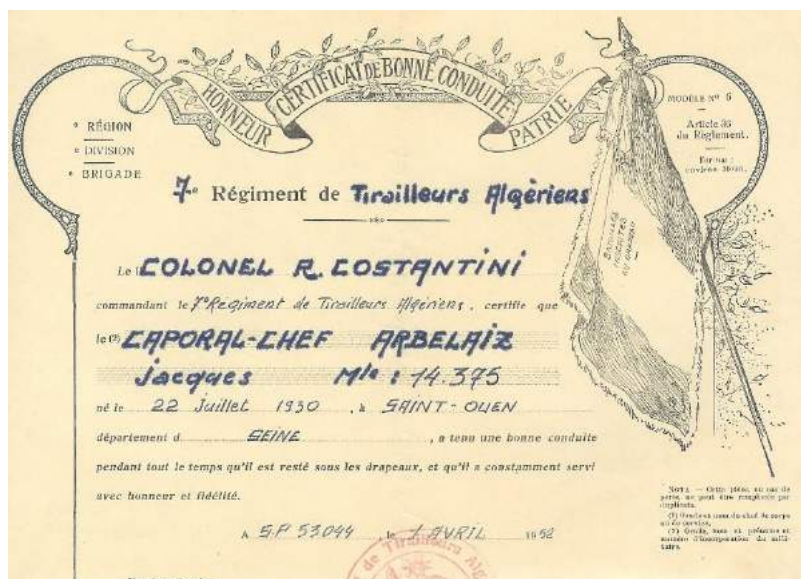 HONNEUR
CERTIFICAT DE BONNE CONDUITE
PATRIE
MODÈLE Nº 6
Article 36
du Règlement.
Format :
RÉGION
DIVISION
BRIGADE
7e Régiment de Tirailleurs Algériens
Le COLONEL R. COSTANTINI
commandant le 7º Régiment de Tirailleurs Algériens, certifie que
le (2) CAPORAL-CHEF ARBELAIZ
Jacques Mle : 14.375
né le 22 Juillet 1930, à SAINT-OUEN
département d SEINE, a tenu une bonne conduite
pendant tout le temps qu'il est resté sous les drapeaux, et qu'il a constamment servi
avec honneur et fidélité.
A S.P 53044 le 1 AVRIL 1952
NOTA. — Cette pièce, en cas de
perte, ne peut être remplacée par
duplicata.
(1) Grade et nom du chef de corps
ou de service.
(2) Grade, nom et prénoms et
numéro d'incorporation du mili-
taire.
de Tirailleurs Alg